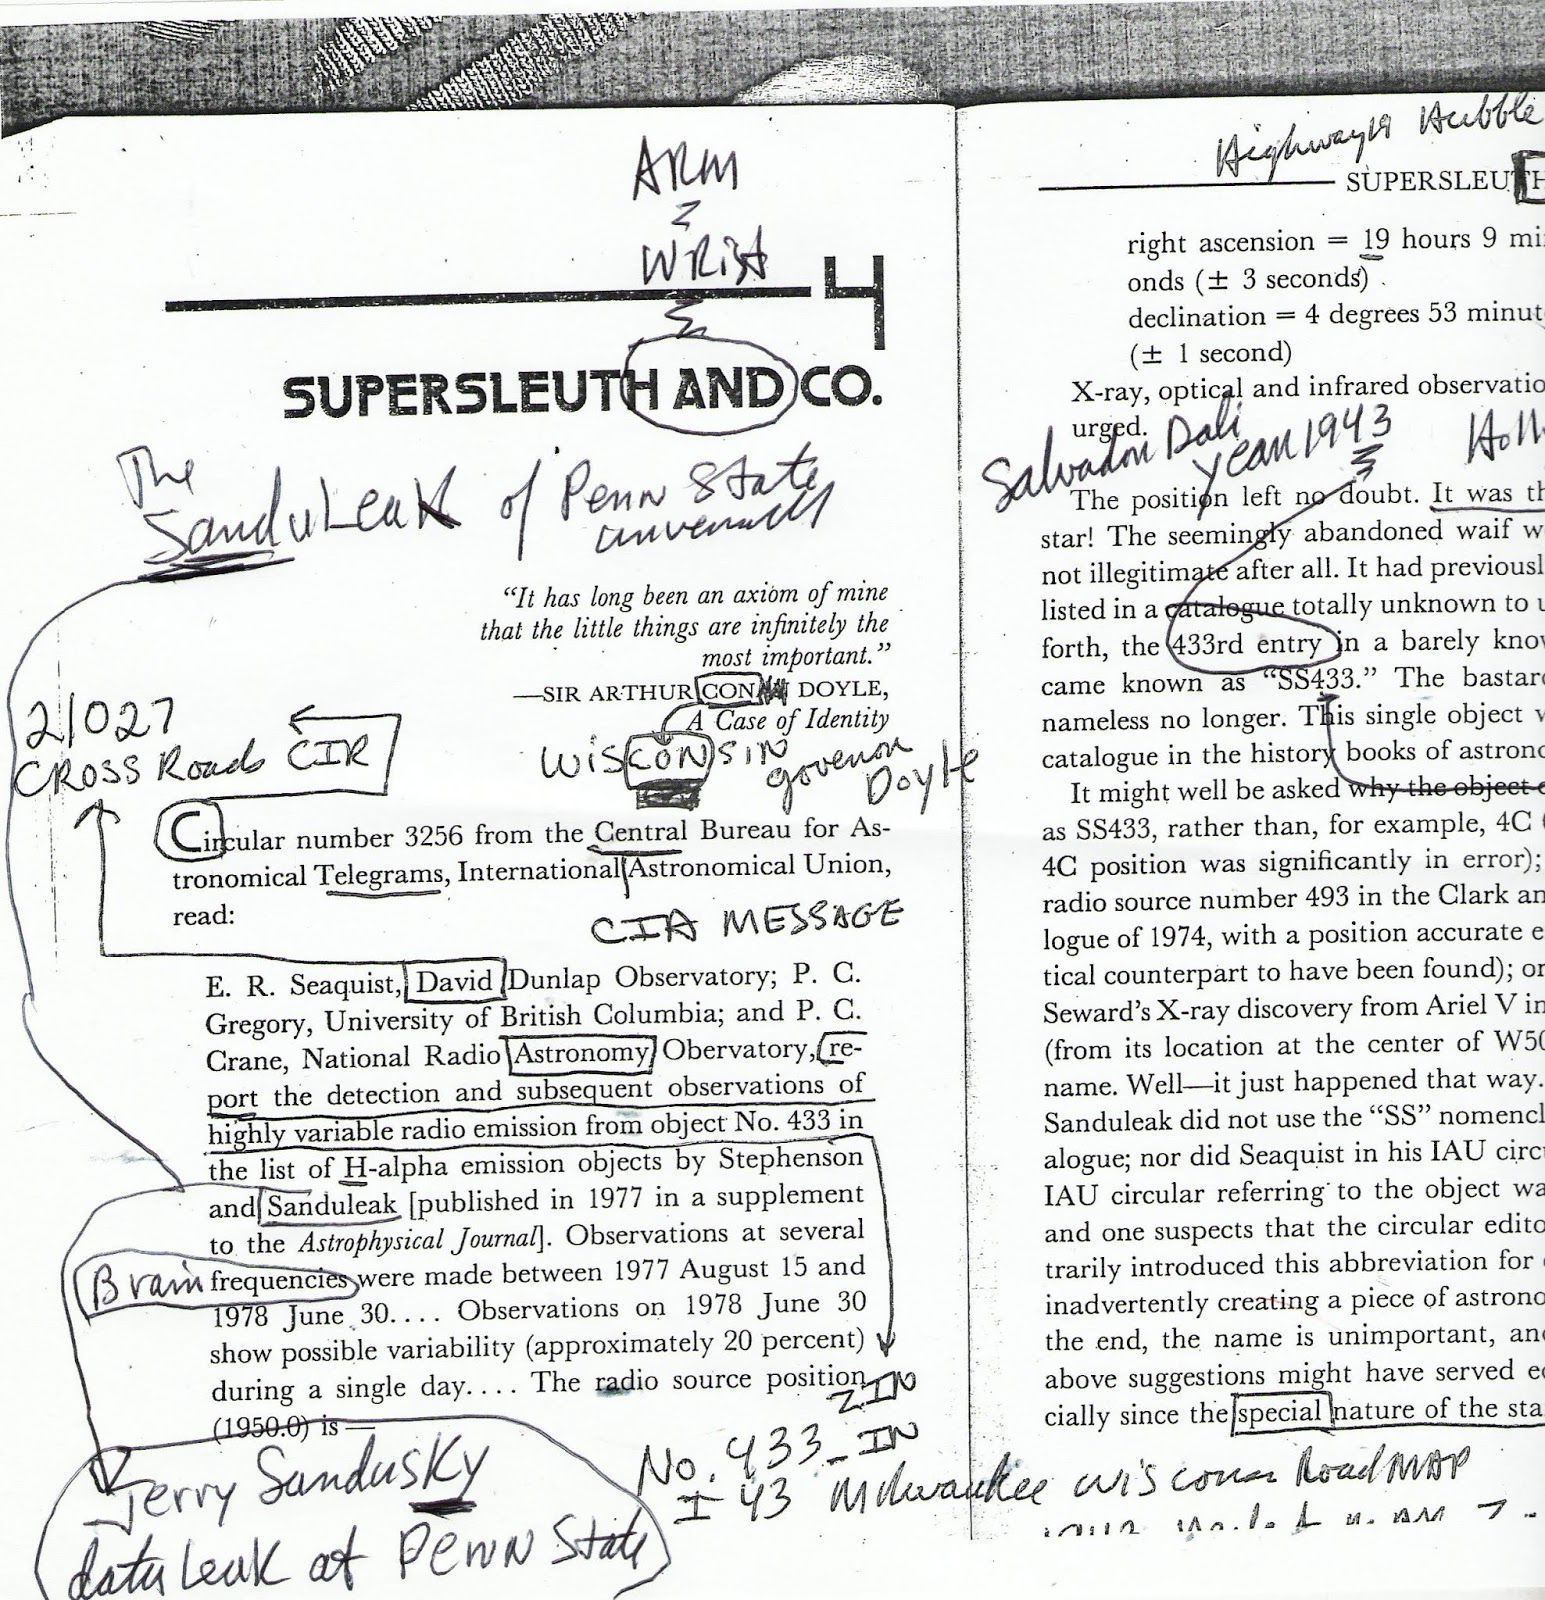 ARM
WRIST
4
SUPERSLEUTH AND CO.
The
SanduLeak of Penn State
"It has long been an axiom of mine
that the little things are infinitely the
most important."
—SIR ARTHUR CON DOYLE,
A Case of Identity
WISCONSIN
govenor
Doyle
21027
CROSS Roads CIR
Circular number 3256 from the Central Bureau for As-
tronomical Telegrams, International Astronomical Union,
read:
CIA MESSAGE
E. R. Seaquist, David Dunlap Observatory; P. C.
Gregory, University of British Columbia; and P. C.
Crane, National Radio Astronomy Obervatory, re-
port the detection and subsequent observations of
highly variable radio emission from object No. 433 in
the list of H-alpha emission objects by Stephenson
and Sanduleak [published in 1977 in a supplement
to the Astrophysical Journal]. Observations at several
Brain frequencies were made between 1977 August 15 and
1978 June 30.... Observations on 1978 June 30
show possible variability (approximately 20 percent)
during a single day.... The radio source position
(1950.0) is—
Jerry Sandusky
data Leak at PENN State
No. 433-IN
I-43 Milwaukee Wisconsin Road MAP
Highway 19 Hubble
SUPERSLEUTH
right ascension = 19 hours 9 mi
onds (± 3 seconds)
declination = 4 degrees 53 minut
(± 1 second)
X-ray, optical and infrared observatio
urged.
Salvador Dali
year 1943
The position left no doubt. It was th
star! The seemingly abandoned waif w
not illegitimate after all. It had previousl
listed in a catalogue totally unknown to u
forth, the 433rd entry in a barely know
came known as "SS433." The bastard
nameless no longer. This single object w
catalogue in the history books of astrono
It might well be asked why the object
as SS433, rather than, for example, 4C
4C position was significantly in error);
radio source number 493 in the Clark an
logue of 1974, with a position accurate e
tical counterpart to have been found); or
Seward's X-ray discovery from Ariel V in
(from its location at the center of W50
name. Well—it just happened that way.
Sanduleak did not use the "SS" nomencl
alogue; nor did Seaquist in his IAU circu
IAU circular referring to the object wa
and one suspects that the circular edito
trarily introduced this abbreviation for
inadvertently creating a piece of astrono
the end, the name is unimportant, and
above suggestions might have served e
cially since the special nature of the sta